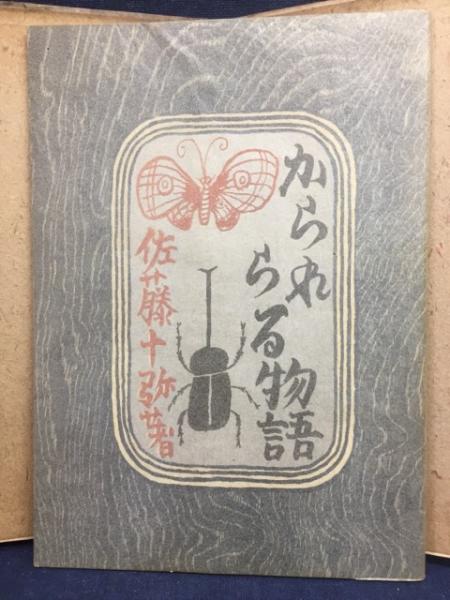 からられ
らる物語
佐藤十弥著